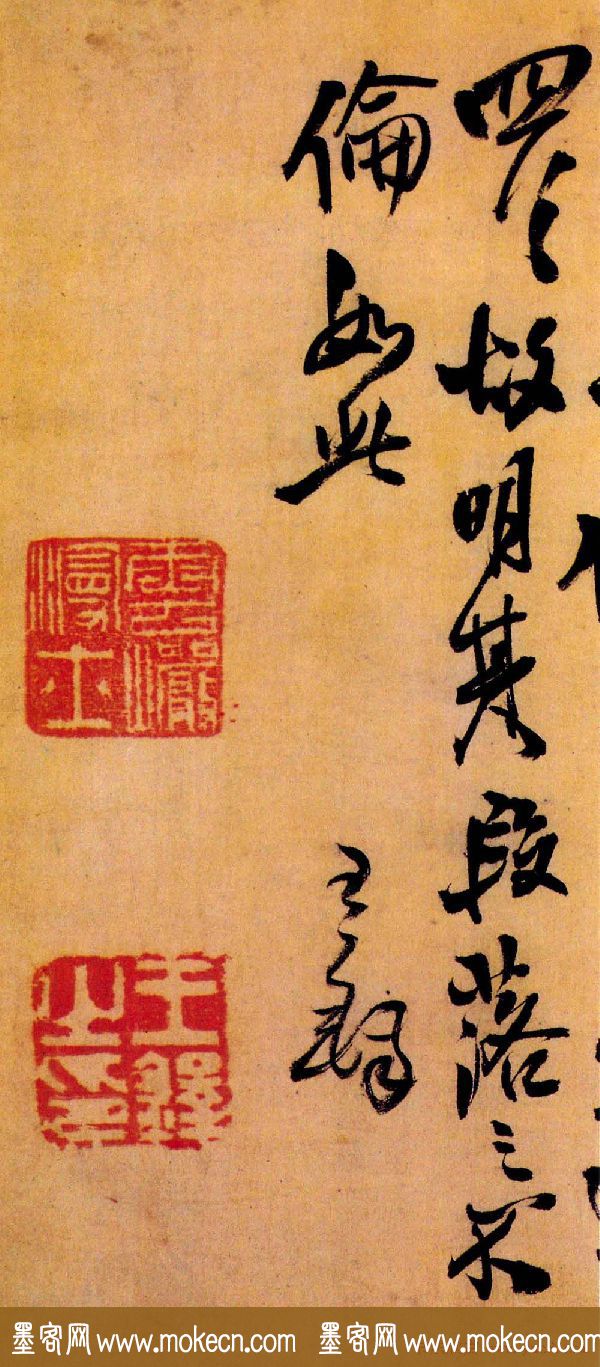 之故明其段落之不
倫如此
王鐸
王鐸之印
墨客网 www.mokecn.com 墨客网 www.mokecn.com